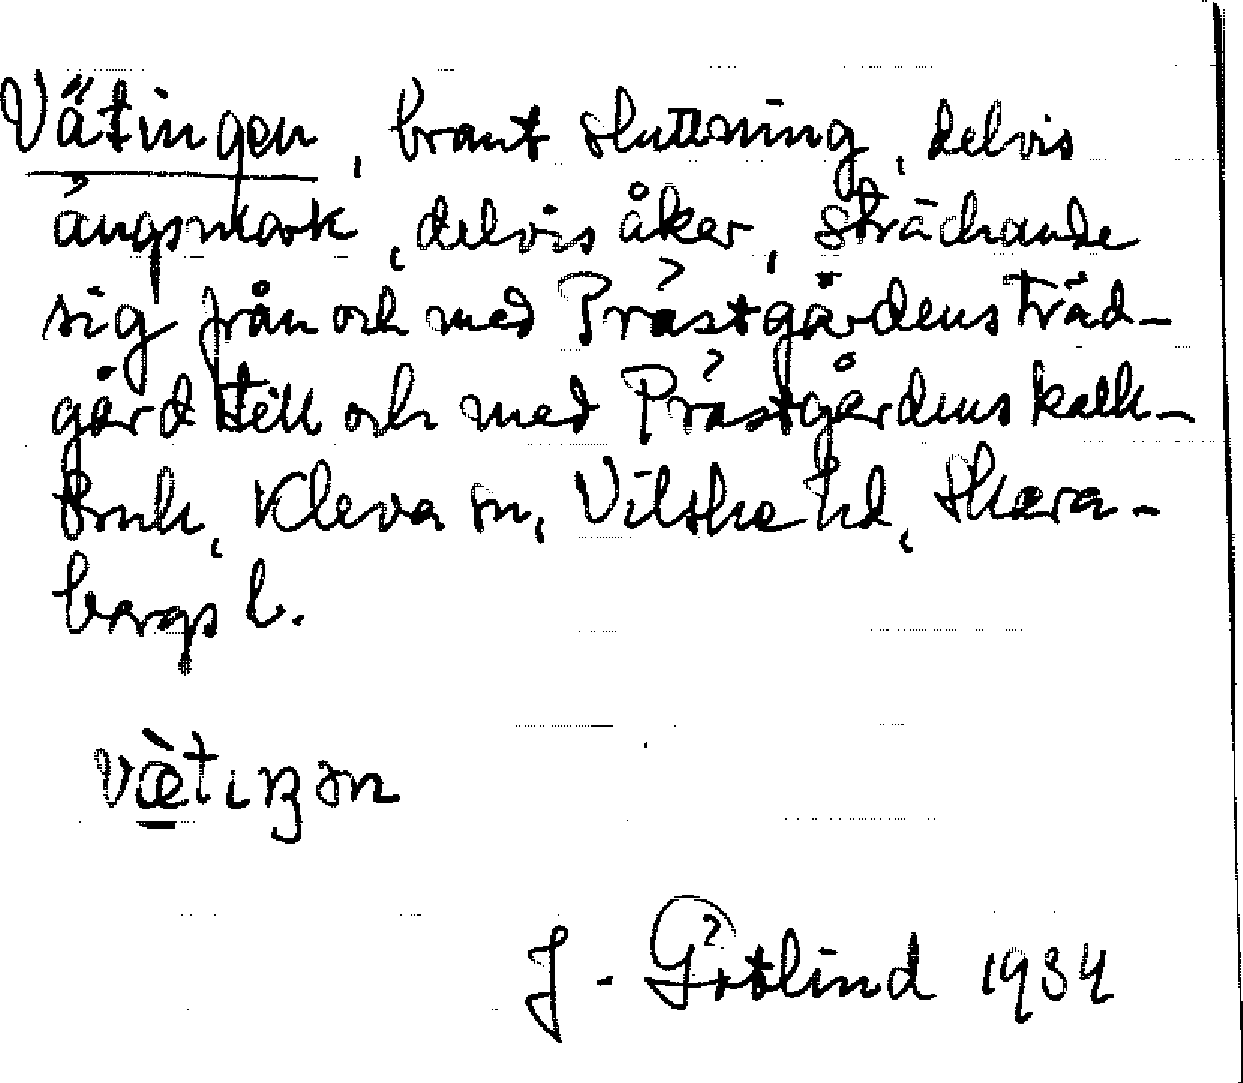 Vätingen, brant sluttning, delvis
ängsmark, delvis åker, sträckande
sig från och med Prästgårdens träd-
gård till och med Prästgårdens kalk-
bruk, Kleva sn, Vilske hd, Skara-
borgs l.
væ̀tıŋən
J. Götlind 1934